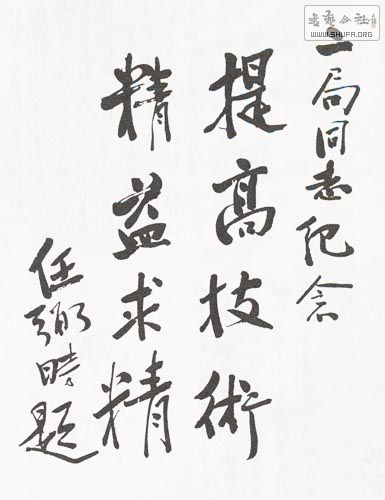 三局同志纪念
提高技術
精益求精
任弼時題
書藝公社
WWW.SHUFA.ORG